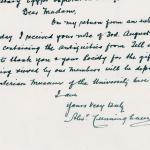 Dear Madam,
On my return from an
I received your note of 3rd. August
containing the antiquities from Tell
to thank you & your Society for the gift
being viewed by our members will be
Museum of the University
I am
Yours very truly
Alex Cunningham